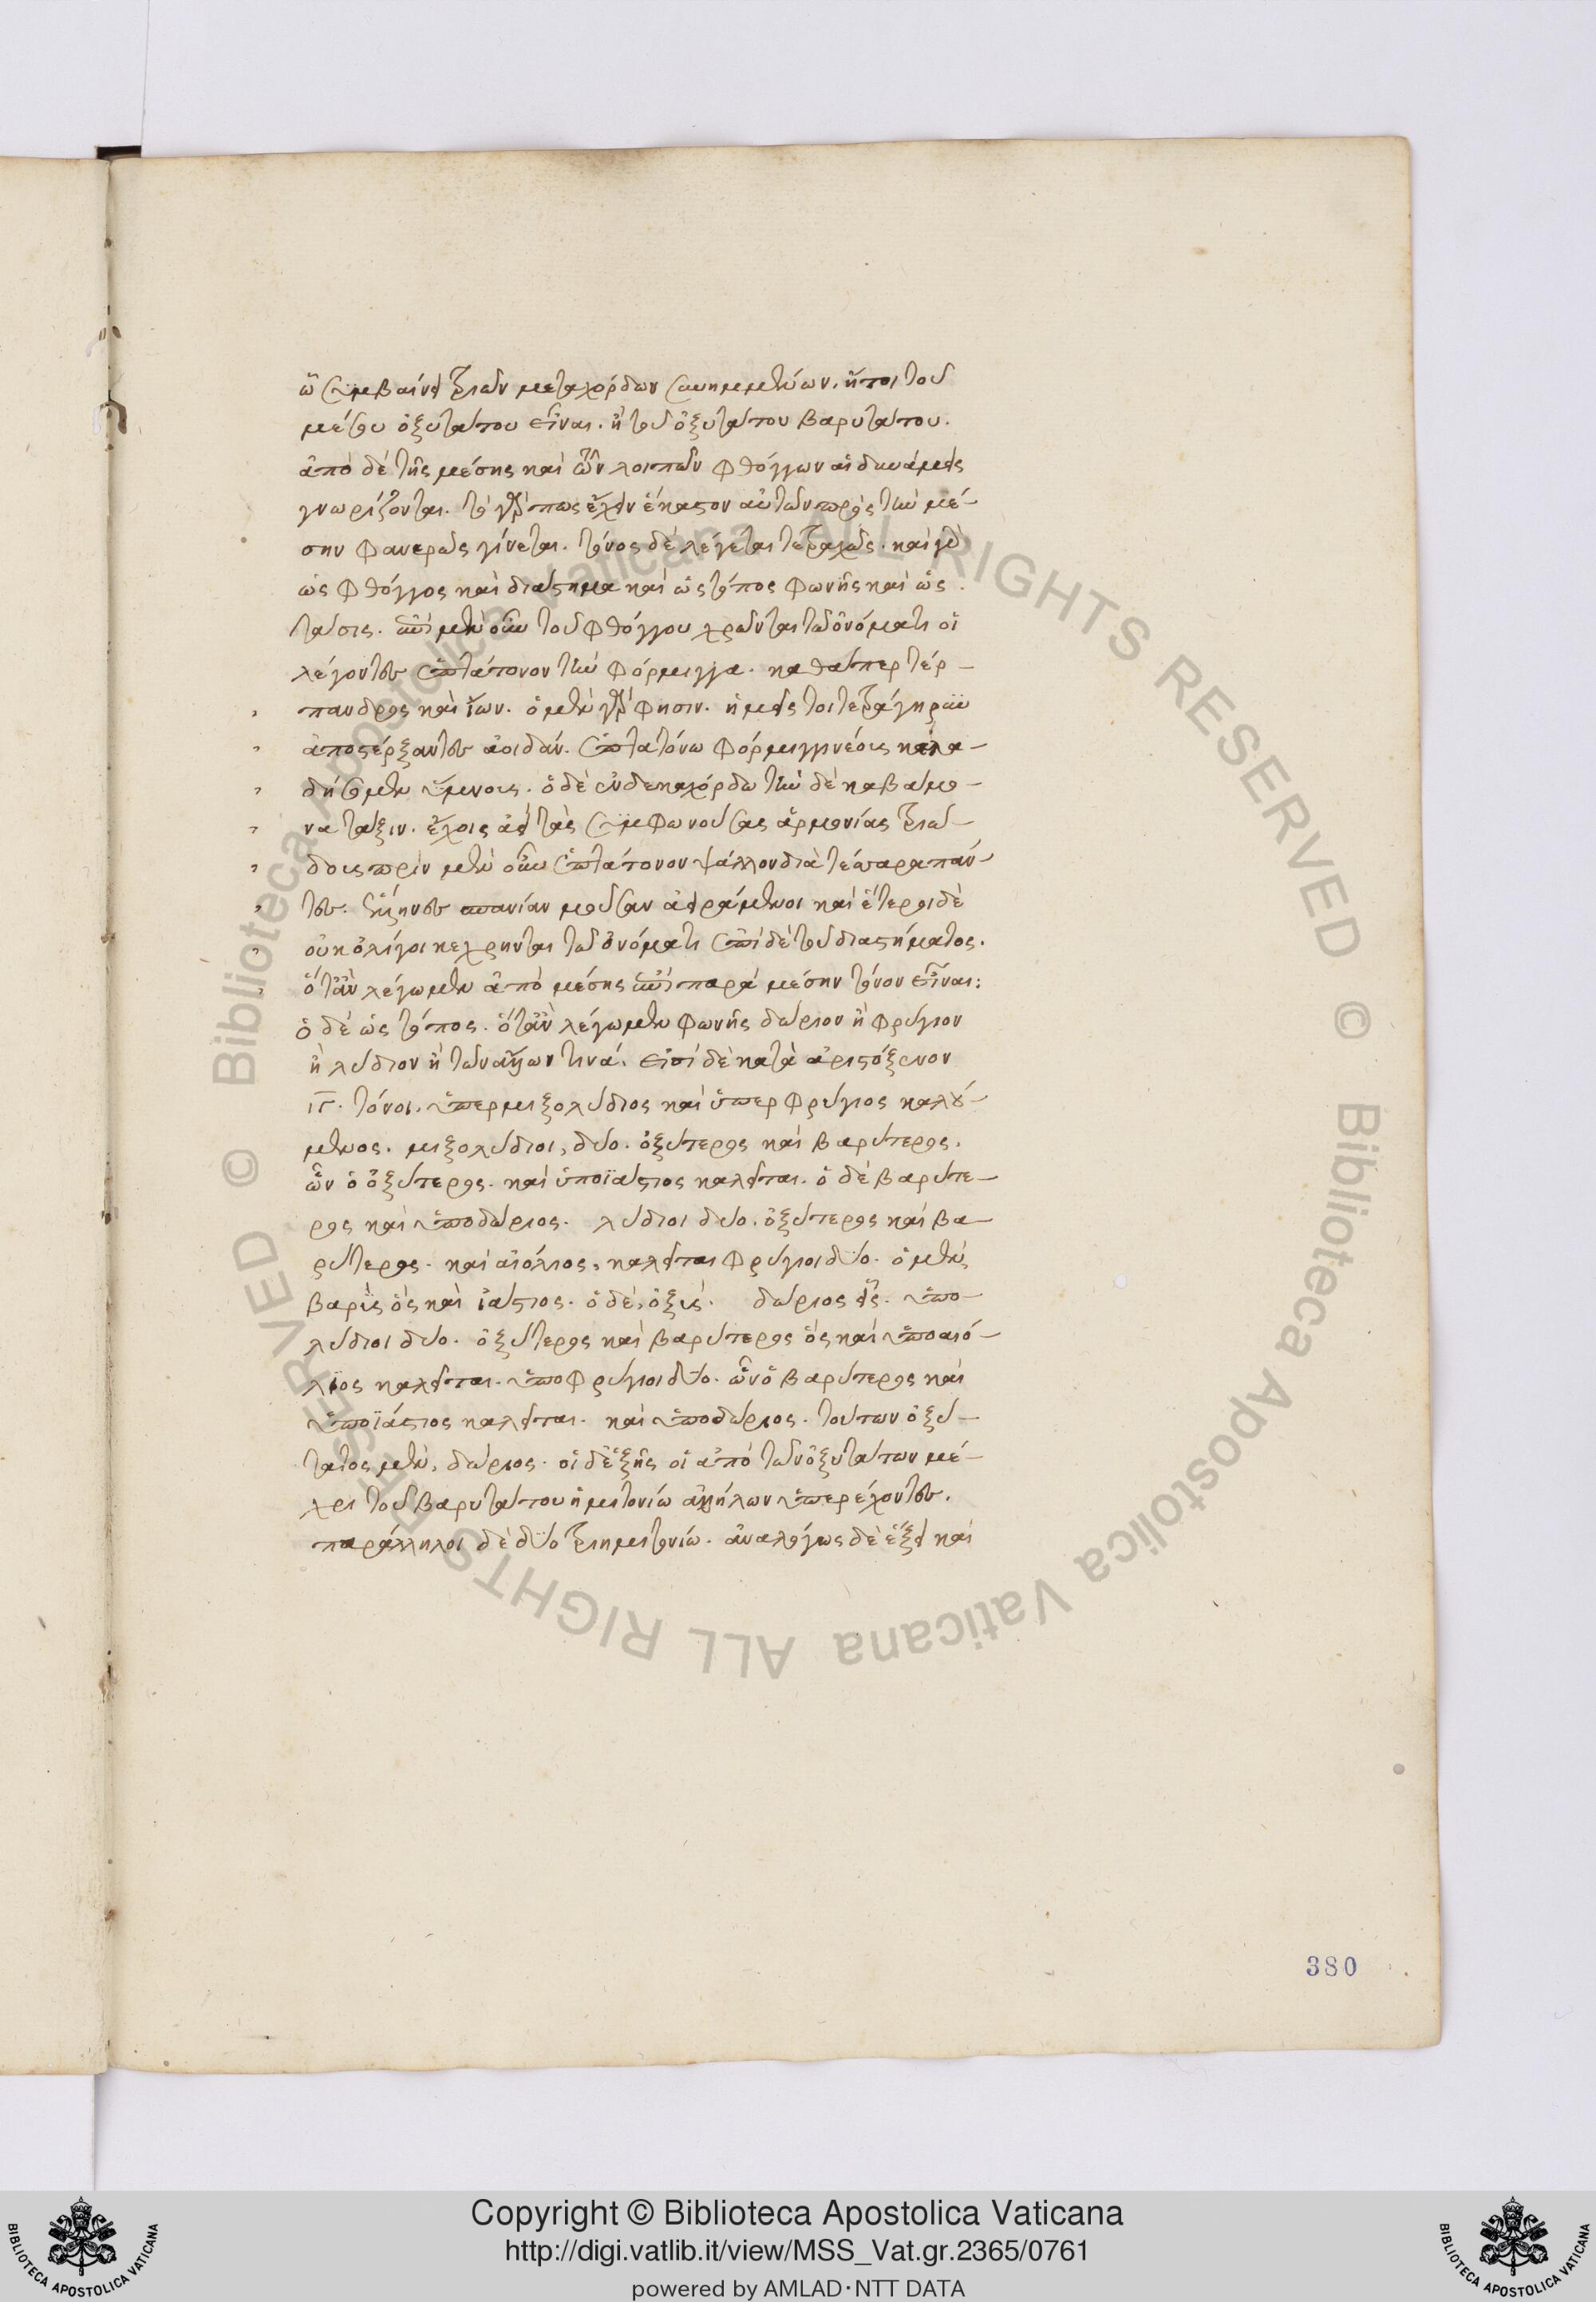 ὧ συμβαίνει τριῶν μεταχόρδων συνημμένων. ἤτοι τοῦ
μέσου ὀξυτάτου εἶναι. ἢ τοῦ ὀξυτάτου βαρυτάτου.
ἀπὸ δὲ τῆς μέσης καὶ τῶν λοιπῶν φθόγγων αἱ δυνάμεις
γνωρίζονται. τὸ γὰρ πως ἔχειν ἕκαστον αὐτῶν πρὸς τὴν μέ-
σην φανερῶς γίνεται. τόνος δὲ λέγεται τετραχῶς. καὶ γὰρ
ὡς φθόγγος καὶ διάστημα καὶ ὡς τόπος φωνῆς καὶ ὡς
τάσις. ἐπὶ μὲν οὖν τοῦ φθόγγου χρῶνται τῶ ὀνόματι οἱ
λέγοντες ἑπτάτονον τὴν φόρμιγγα. καθάπερ τέρ-
πανδρος καὶ ἴων. ὁ μὲν γάρ φησιν. ἡμεῖς τοι τετράγηρυν
ἀποστέρξαντες ἀοιδάν. ἑπτατόνω φόρμιγγι νέους κελα-
δήσομεν ὕμνους. ὁ δὲ ἐνδεκαχόρδω τὴν δεκαβάμο-
να τάξιν. ἔχοις ἀεὶ τὰς συμφωνούσας ἁρμονίας τριό-
δους πρὶν μὲν οὖν ἑπτάτονον ψάλλον διὰ τέσσαρα πάν-
τες. ἕλληνες σπανίαν μοῦσαν ἀειράμενοι καὶ ἕτεροι δὲ
οὐκ ὀλίγοι κέχρηνται τῶ ὀνόματι ἐπὶ δὲ τοῦ διαστήματος.
ὅταν λέγωμεν ἀπὸ μέσης ἐπὶ παρὰ μέσην τόνον εἶναι:
ὁ δὲ ὡς τόπος. ὅταν λέγωμεν φωνῆς δώριον ἢ φρύγιον
ἢ λύδιον ἢ τῶν ἄλλων τινά. εἰσὶ δὲ κατὰ ἀριστόξενον
ιγ. τόνοι. ὑπερμιξολύδιος καὶ ὑπερφρύγιος καλού-
μενος. μιξολύδιοι, δύο. ὀξύτερος καὶ βαρύτερος.
ὧν ὁ ὀξύτερος. καὶ ὑποϊάστιος καλεῖται. ὁ δὲ βαρύτε-
ρος καὶ ὑποδώριος. λύδιοι δύο. ὀξύτερος καὶ βα-
ρύτερος. καὶ αἰόλιος, καλεῖται φρύγιοι δύο. ὁ μὲν
βαρὺς ὃς καὶ ἰάστιος. ὁ δὲ, ὀξύς. δώριος εἷς. ὑπο-
λύδιοι δύο. ὀξύτερος καὶ βαρύτερος ὃς καὶ ὑποαιό-
λιος καλεῖται. ὑποφρύγιοι δύο. ὧν ὁ βαρύτερος καὶ
ὑποϊάστιος καλεῖται. καὶ ὑποδώριος. τούτων ὀξύ-
τατος μὲν, δώριος. οἱ δ' ἑξῆς οἱ ἀπὸ τῶν ὀξυτάτων μέ-
χρι τοῦ βαρυτάτου ἡμιτονίω ἀλλήλων ὑπερέχοντες.
παράλληλοι δὲ δύο τριημιτονίω. ἀναλόγως δὲ ἕξει καὶ
380
Copyright © Biblioteca Apostolica Vaticana
http://digi.vatlib.it/view/MSS_Vat.gr.2365/0761
powered by AMLAD·NTT DATA